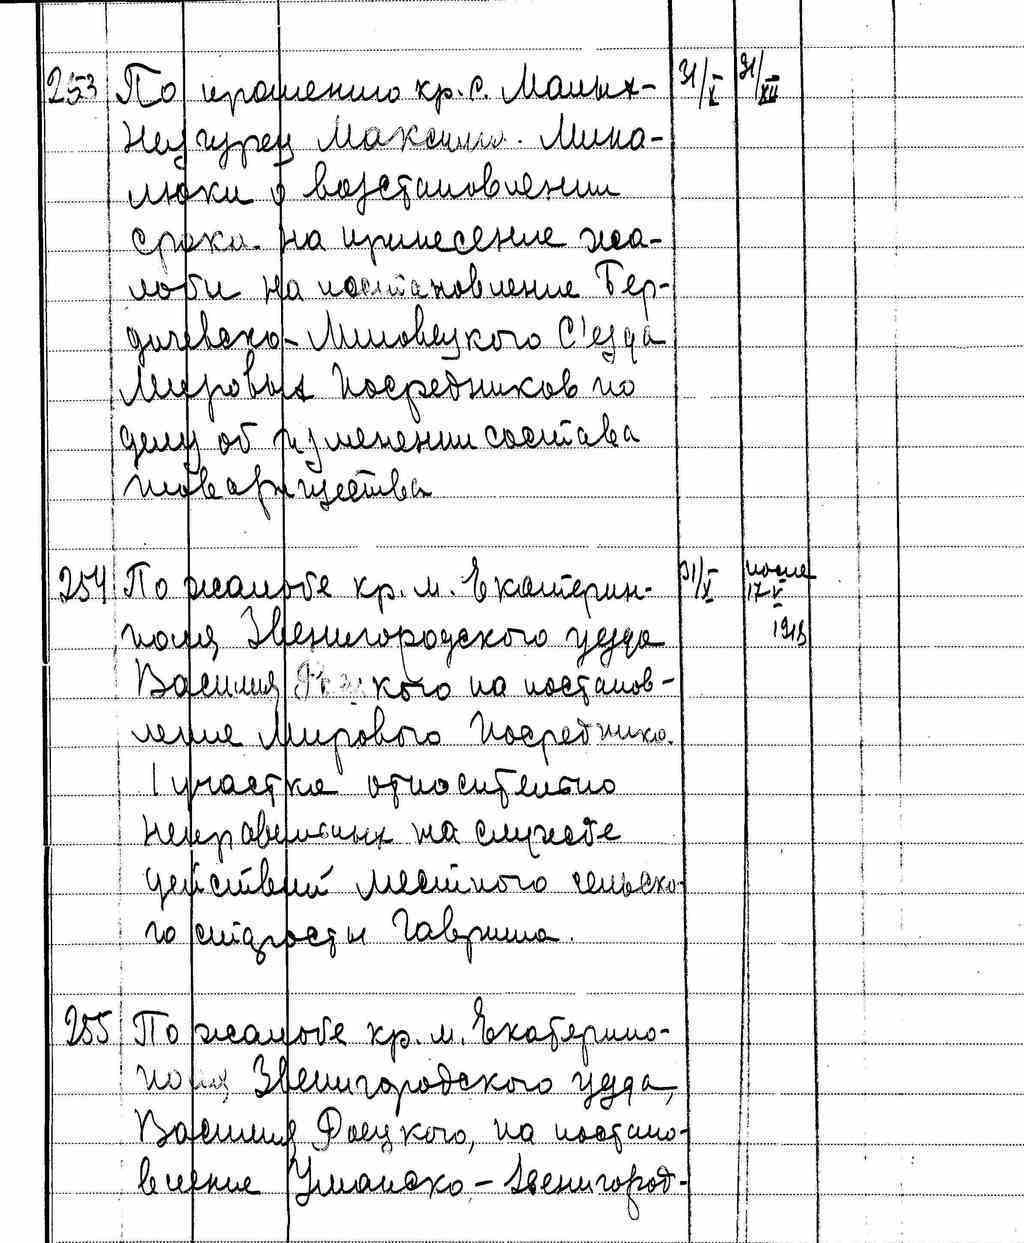 253 По прошению кр. с. Малых- 31/X 31/XII
Низгурец Максима Мика-
люки о возстановлении
срока на принесение жа-
лобы на постановление Бер-
дичевско-Липовецкого С'езда
Мировых Посредников по
делу об изменении состава
товарищества
254 По жалобе кр. м. Екатерин- 31/X после
поля Звенигородского уезда 17 V 1913
Василия на постанов-
ление Мирового Посредника
1 участка относительно
неправильных на службе
действий местного сельско-
го старосты Гаврила.
255 По жалобе кр. м. Екатерино-
поля Звенигородского уезда,
Василия Доецкого, на постано-
вление Уманско-Звенигород-